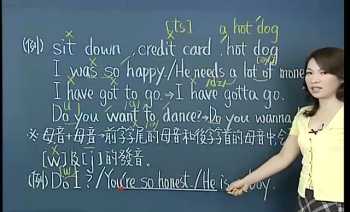 [ts] a hot dog
(例) sit down, credit card, hot dog
I was so happy./He needs a lot of mone
I have got to go.→I have gotta go.
Do you want to dance?→Do you wanna
※母音+母音→前字字尾的母音和後字首的母音中會
[w]或[j]的發音。
[w]
(例) Do I?/You're so honest./He is